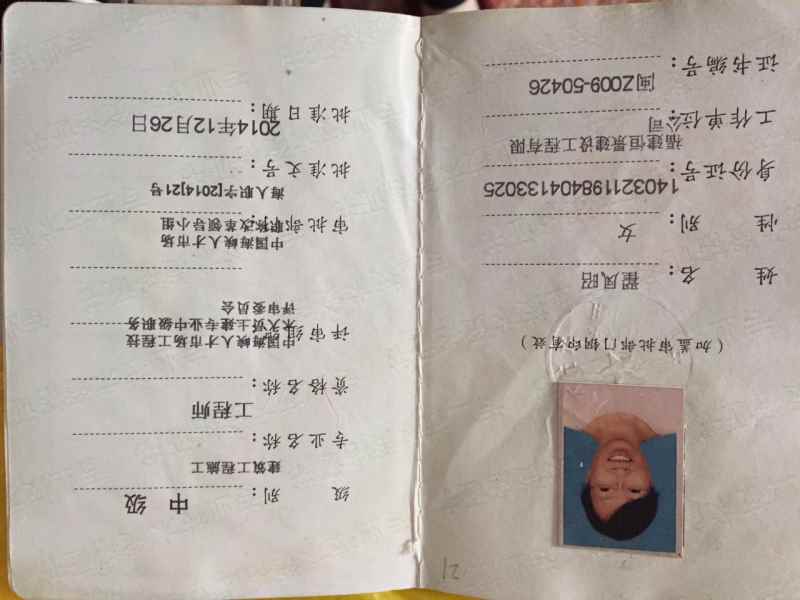 (加盖审批部门钢印有效)
姓 名：翟凤昭
性 别：女
身份证号：140321198404133025
工作单位：福建恒景建设工程有限
公司
证书编号：闽Z009-50426
级 别：中 级
专业名称：建筑工程施工
资格名称：工程师
评审组织：中国海峡人才市场工程技
术人员土建专业中级职务
评审委员会
中国海峡人才市场
审批部门：职称改革领导小组
批准文号：海人职字[2014]21号
批准日期：2014年12月26日